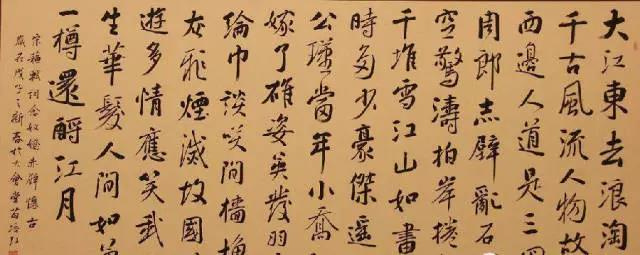 大江東去浪淘
千古風流人物故
西邊人道是三國
周郎赤壁亂石
空驚濤拍岸捲
千堆雪江山如畫
時多少豪傑遙
公瑾當年小喬
嫁了雄姿英發羽
綸巾談笑間檣櫓
灰飛煙滅故國
遊多情應笑我
生華髮人間如
一樽還酹江月
宋蘇軾詞念奴嬌赤壁懷古
歲在戊子之新春於大會堂